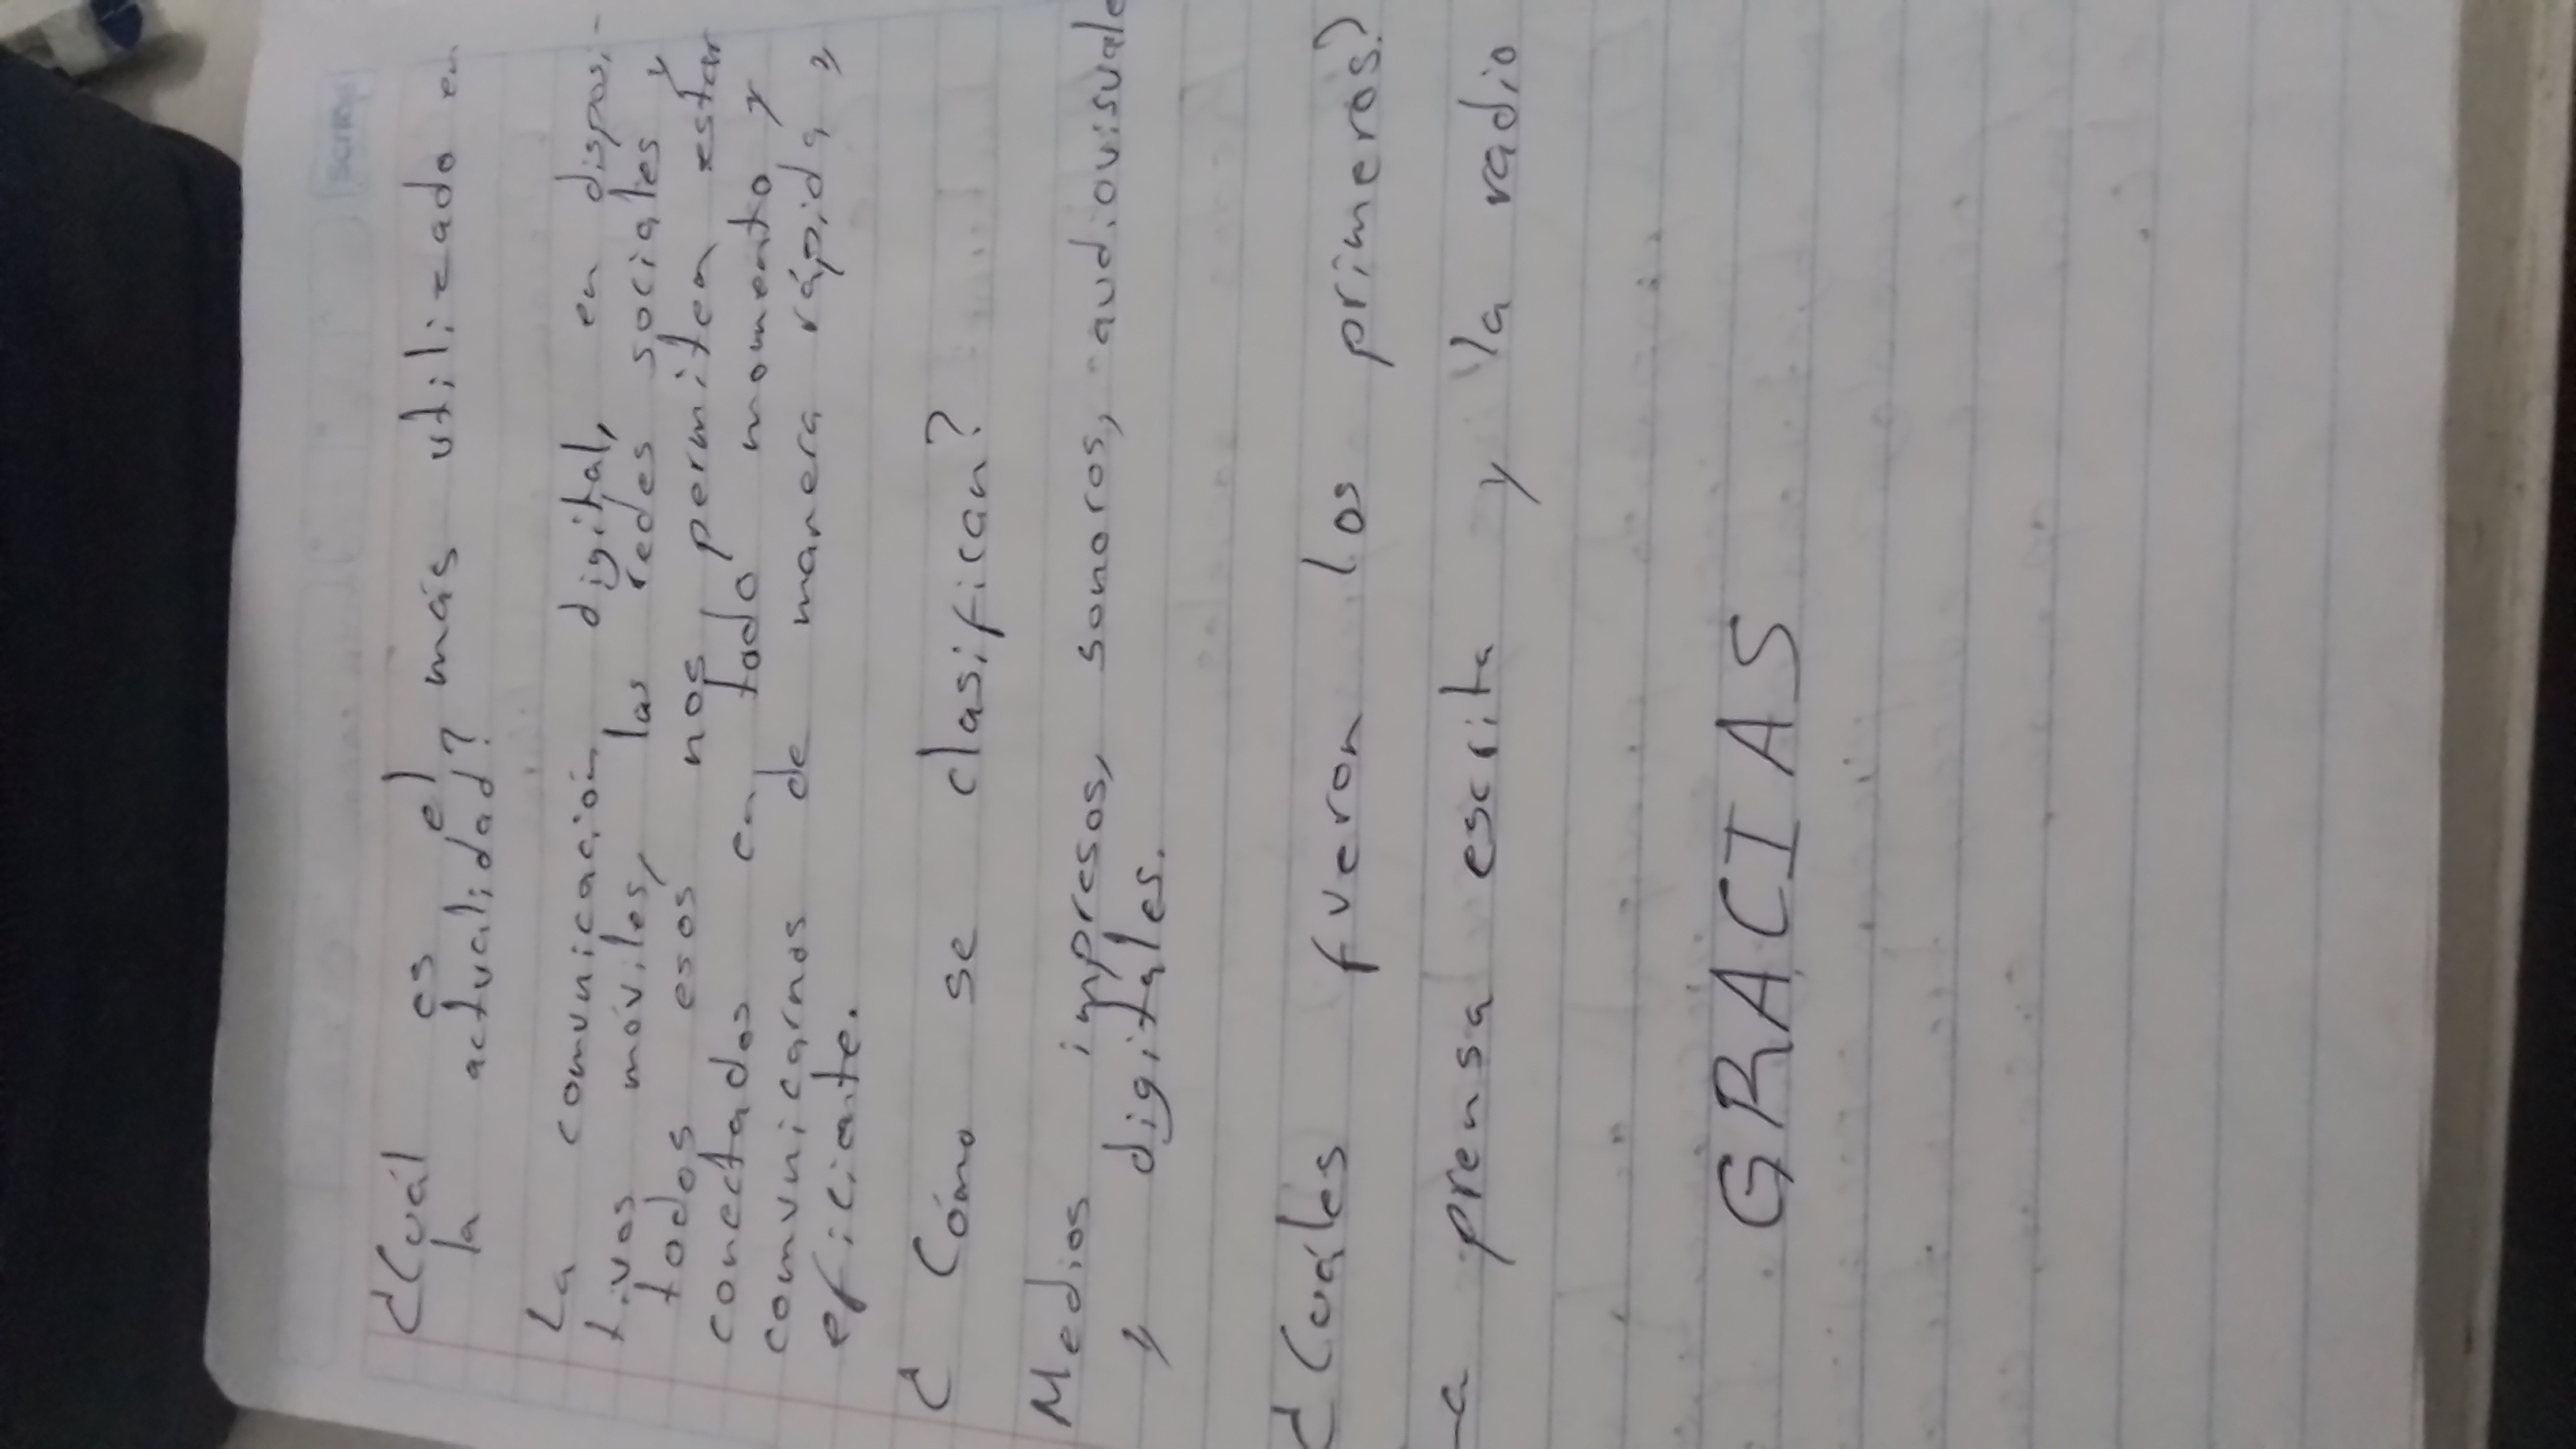 ¿Cuál es el más utilizado en
la actualidad?
La comunicación digital, en disposi-
tivos móviles, las redes sociales y
todos esos nos permiten estar
conectados en todo momento y
comunicarnos de manera rápida y
eficiente.
¿Cómo se clasifican?
Medios impresos, sonoros, audiovisuale
y digitales.
¿Cuáles fueron los primeros?
a prensa escrita y la radio
GRACIAS